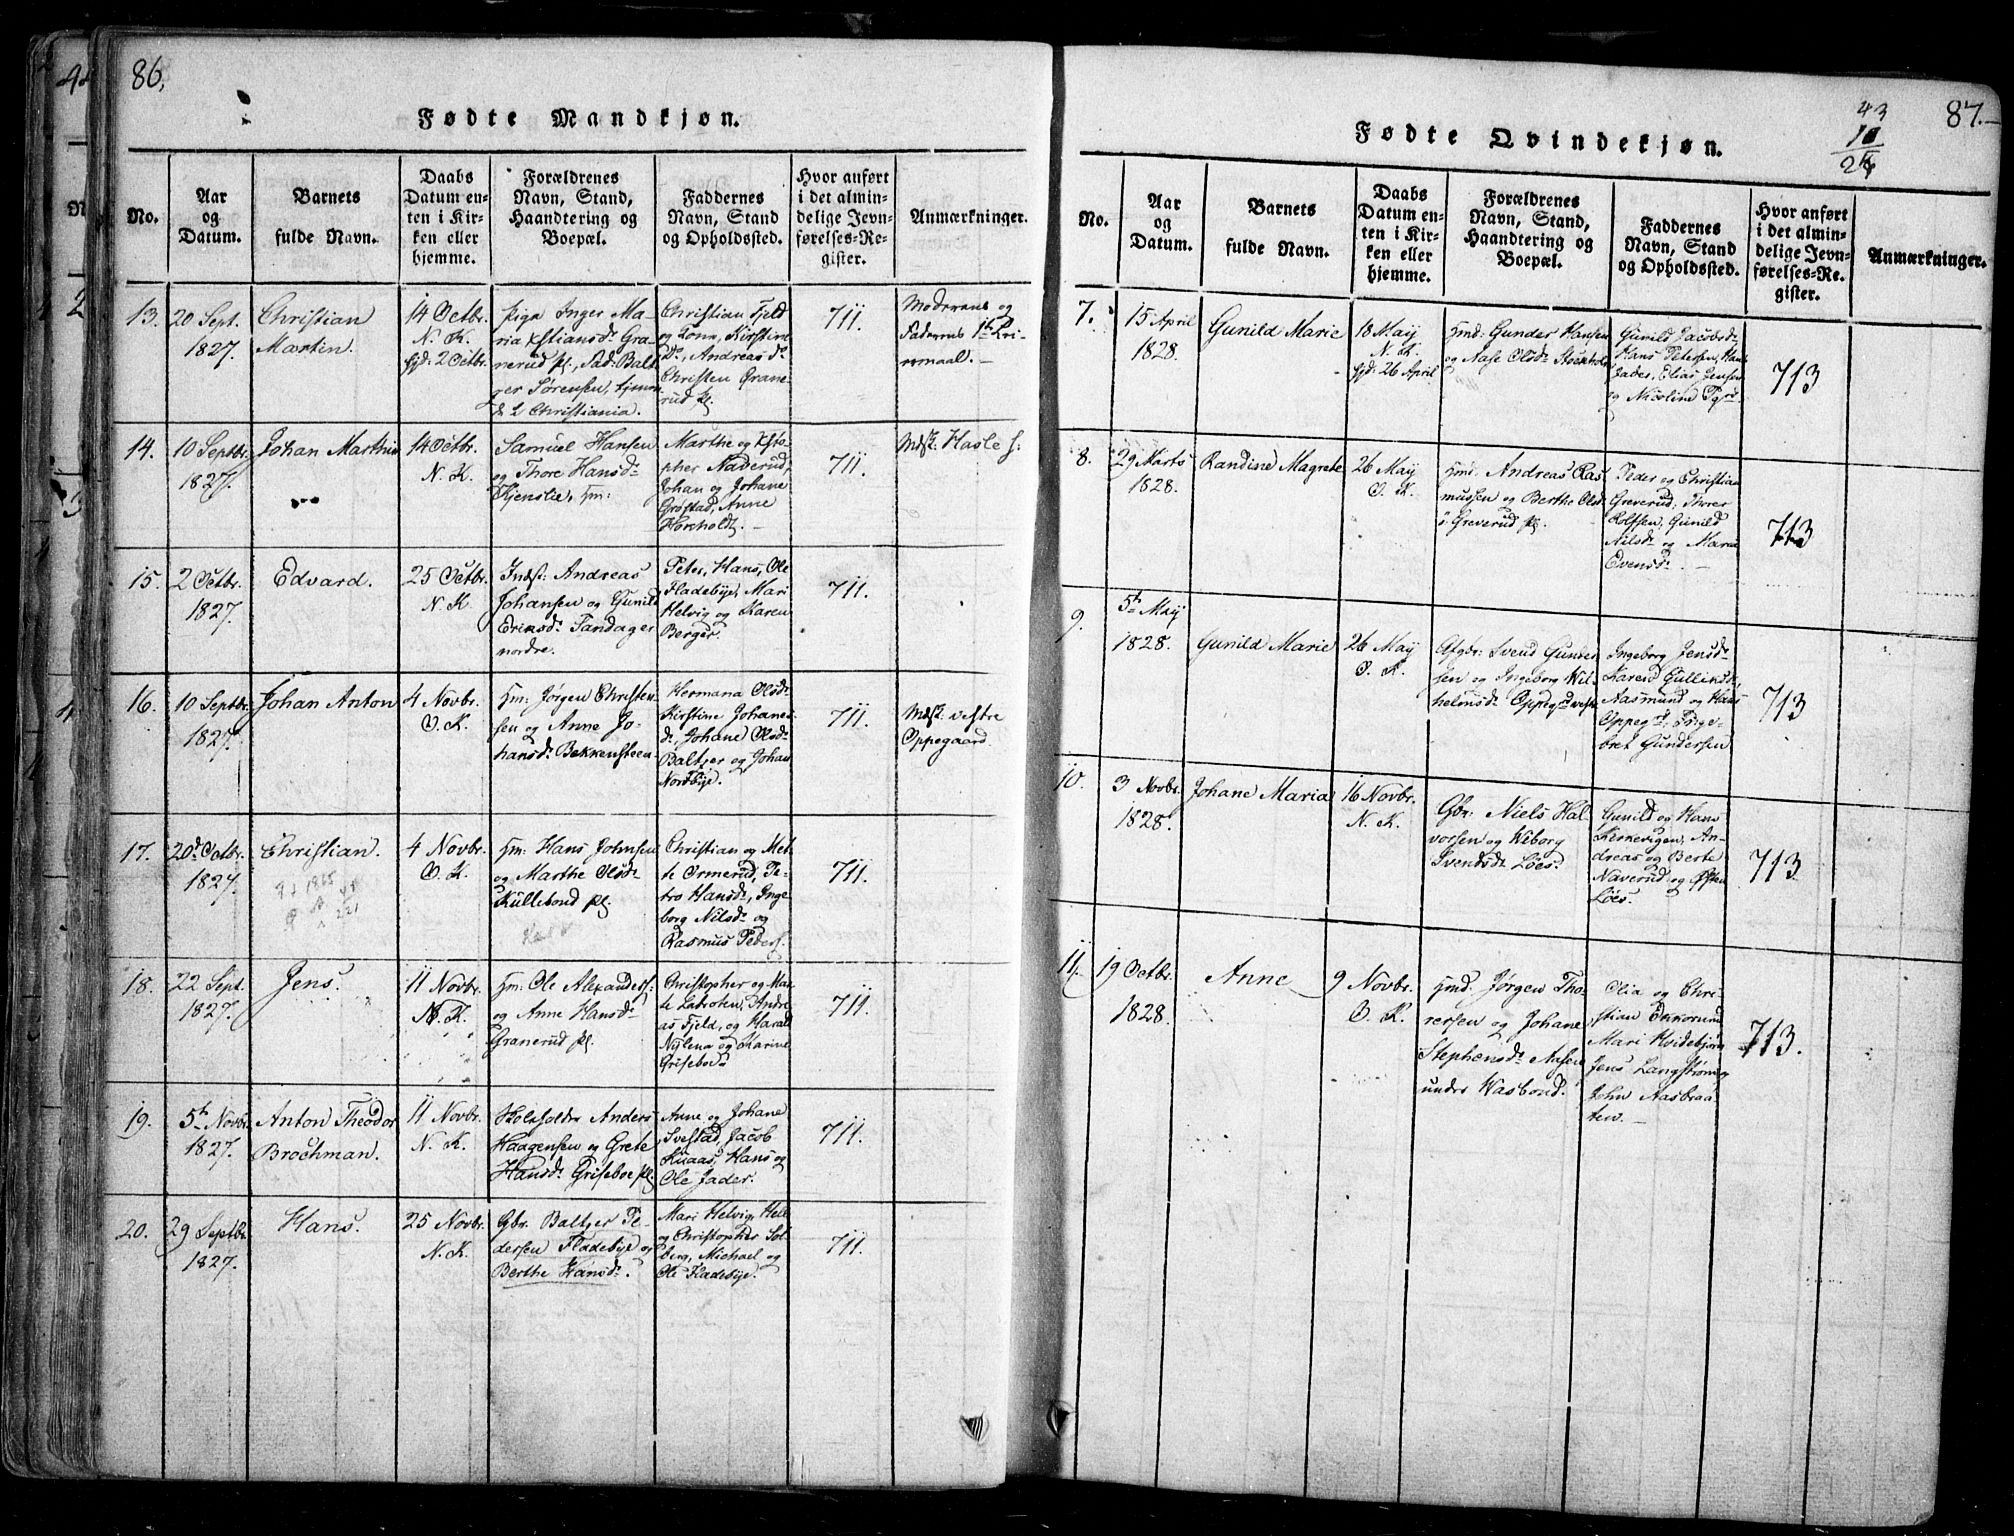 86.
Fødte Mandkjøn.
No.
Aar
og
Datum.
Barnets
fulde Navn.
Daabs
Datum en-
ten i Kir-
ken eller
hjemme.
Forældrenes
Navn, Stand,
Haandtering og
Boepæl.
Faddernes
Navn, Stand
og Opholdssted.
Hvor anført
i det almin-
delige Jevn-
førelses-Re-
gister.
Anmærkninger.
13.
20 Sept.
1827.
Christian
Martin.
14 Octbr.
N. K.
hjd: 2 Octbr.
pige Inger Ma-
ria Christiansd: Gra-
nerud pl., Fad: Balt-
zer Sørensen,
Christiania.
Christian Fjeld
og Kone, Kirstine
Do, Andreas do
Christen Grane-
rud pl.
711.
Moderens og
Faderens 1te Lei-
ermaal.
14.
10 Septbr.
1827.
Johan Marthin
14 Octbr.
N. K.
Samuel Hansen
og Thore Hansd:
Kjenslie, hm:
Marthe og Xsto-
pher Naderud,
Johan og Johane
Grøstad, Anne
Horeholdt.
711.
Mdst: Hasle
15.
2 Octbr.
1827.
Edvard.
25 Octbr.
N. K.
Indst: Andreas
Johansen og Gunild
Ericksd: Tandager
nordre.
Peter, Hans, Ole
Fladebye, Mari
Helvig og Karen
Berger.
711.
16.
10 Septbr.
1827.
Johan Anton
4 Novbr.
O. K.
hm: Jørgen Christen-
sen og Anne Jo-
hansd: Bekkensteen
Hermana Olsd:
Kirstine Johanes-
d:, Johane Olsd:
Baltzer og Johan
Nordbye.
711.
Mdst: vestre
Oppegaard
17.
20d Octbr.
1827.
Christian.
4 Novbr.
O. K.
hm: Hans Johnsen
og Marthe Olsd:
Kullebond pl.
Christian og Met-
te Ormerud, Pe-
tro Hansd:, Inge-
borg Nilsd: og
Rasmus Peders.
711.
18.
22 Sept.
1827.
Jens.
11 Novbr.
N. K.
hm: Ole Alexanders.
og Anne Hansd:
Granerud pl.
Christopher og Mar-
te Labraaten, Andre-
as Fjeld, og Harald
Nylena og Karine
Griseboe.
711.
19.
5te Novbr.
1827.
Anton Theodor
Brochman.
11 Novbr.
N. K.
Holsfolder Anders
Haagensen og Grete
Hansd: Griseboe pl.
Anne og Johane
Svestad, Jacob
Knaas, Hans og
Ole Jader.
711.
20.
29 Septbr.
1827.
Hans.
25 Novbr.
N. K.
Gbr. Baltzer Pe-
dersen Fladebye og
Berthe Hansd:
Mari Helvig, Hell-
og Christopher Sol-
berg, Michael og
Ole Fladebye.
711.
87.
43
2
Fødte Qvindekjøn.
No.
Aar
og
Datum.
Barnets
fulde Navn.
Daabs
Datum en-
ten i Kir-
ken eller
hjemme.
Forældrenes
Navn, Stand,
Haandtering og
Boepæl.
Faddernes
Navn, Stand
og Opholdssted.
Hvor anført
i det almin-
delige Jevn-
førelses-Re-
gister.
Anmærkninger.
7.
15 April
1828.
Gunild Marie
18 May
N. K.
hjd: 26 April
hmd: Gunder Hansen
og Aase Olsd: Stockhol
Gunild Jacobsd:
Hans Petersen, Hans
Jader, Elias Jensen
og Nicoline
713
8.
29 Marts
1828.
Randine Magrete
26 May
O. K.
hmd: Andreas Ras
mussen og Berthe Olsd
Greverud pl.
Peder og Christian
Greverud, Thore
Rolfsen, Gunild
Nilsd: og Maria
Evensd:
713
9.
5te May
1828.
Gunild Marie
26 May
O. K.
Afgbr: Svend Gunder
sen og Ingeborg Wil-
helmsd: Oppegd vestre
Ingeborg Jensd:
Karen Gulliksd:,
Aasmund og Hans
Oppegd:, Inge-
bret Gundersen
713
10.
3 Novbr.
1828.
Johane Maria
16 Novbr.
N. K.
Gbr. Niels Hal
vorsen og Wiborg
Svendsd: Løes.
Gunild og Hans
Kirkevigen, An-
dreas og Berte
Naverud og
Løes.
713
11.
19 Octbr.
1828.
Anne
9 Novbr.
O. K.
hmd: Jørgen Tho-
rersen og Johane
Stephensd: Aasen
under Wasbond.
Olia og Chri-
stian Ekkornrud
Mari Hvidebjørn
Jens Langstrøm og
John Aasbraa-
ten.
713.